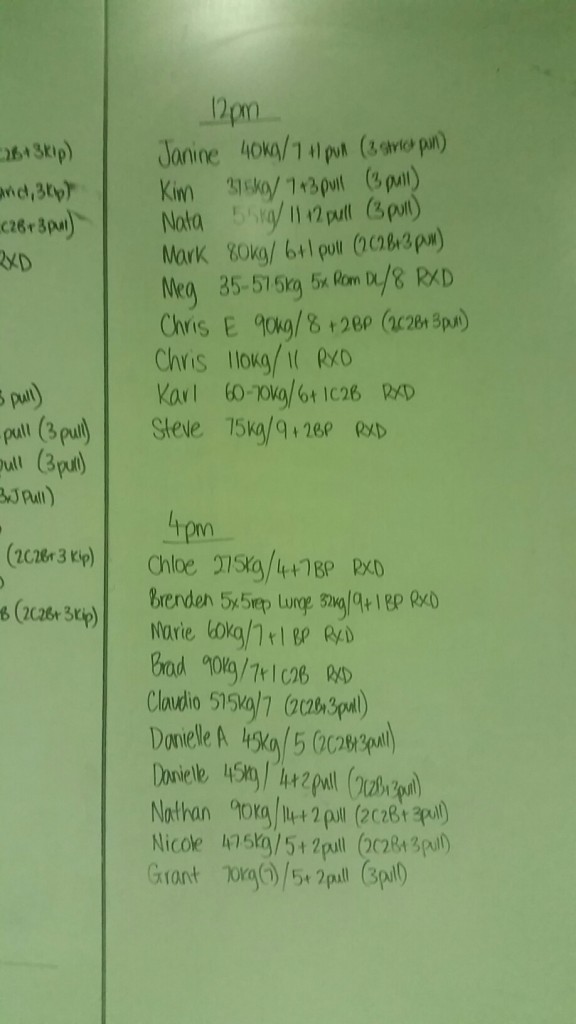 2B+3Kip)
C2B+3pull)
RXD
3 pull)
pull (3 pull)
pull (3 pull)
(2C2B+3 Kip)
B (2C2B+3Kip)
12pm
Janine 40kg/7+1 pull (3 strict pull)
Kim 37.5kg/7+3pull (3 pull)
Nata 55kg/11+2pull (3 pull)
Mark 80kg/6+1 pull (2C2B+3pull)
Meg 35-57.5kg 5x Rom DL/8 RXD
Chris E 90kg/8+2BP (2C2B+3pull)
Chris 110kg/11 RXD
Karl 60-70kg/6+1C2B RXD
Steve 75kg/9+2BP RXD
4pm
Chloe 27.5kg/4+7BP RXD
Brenden 5x5rep Lunge 32kg/9+1BP RXD
Marie 60kg/7+1 BP RXD
Brad 90kg/7+1 C2B RXD
Claudio 57.5kg/7 (2C2B+3pull)
Danielle A 45kg/5 (2C2B+3pull)
Danielle 45kg/4+2pull (2C2B+3pull)
Nathan 90kg/14+2pull (2C2B+3pull)
Nicole 47.5kg/5+2pull (2C2B+3pull)
Grant 70kg(7)/5+2pull (3pull)